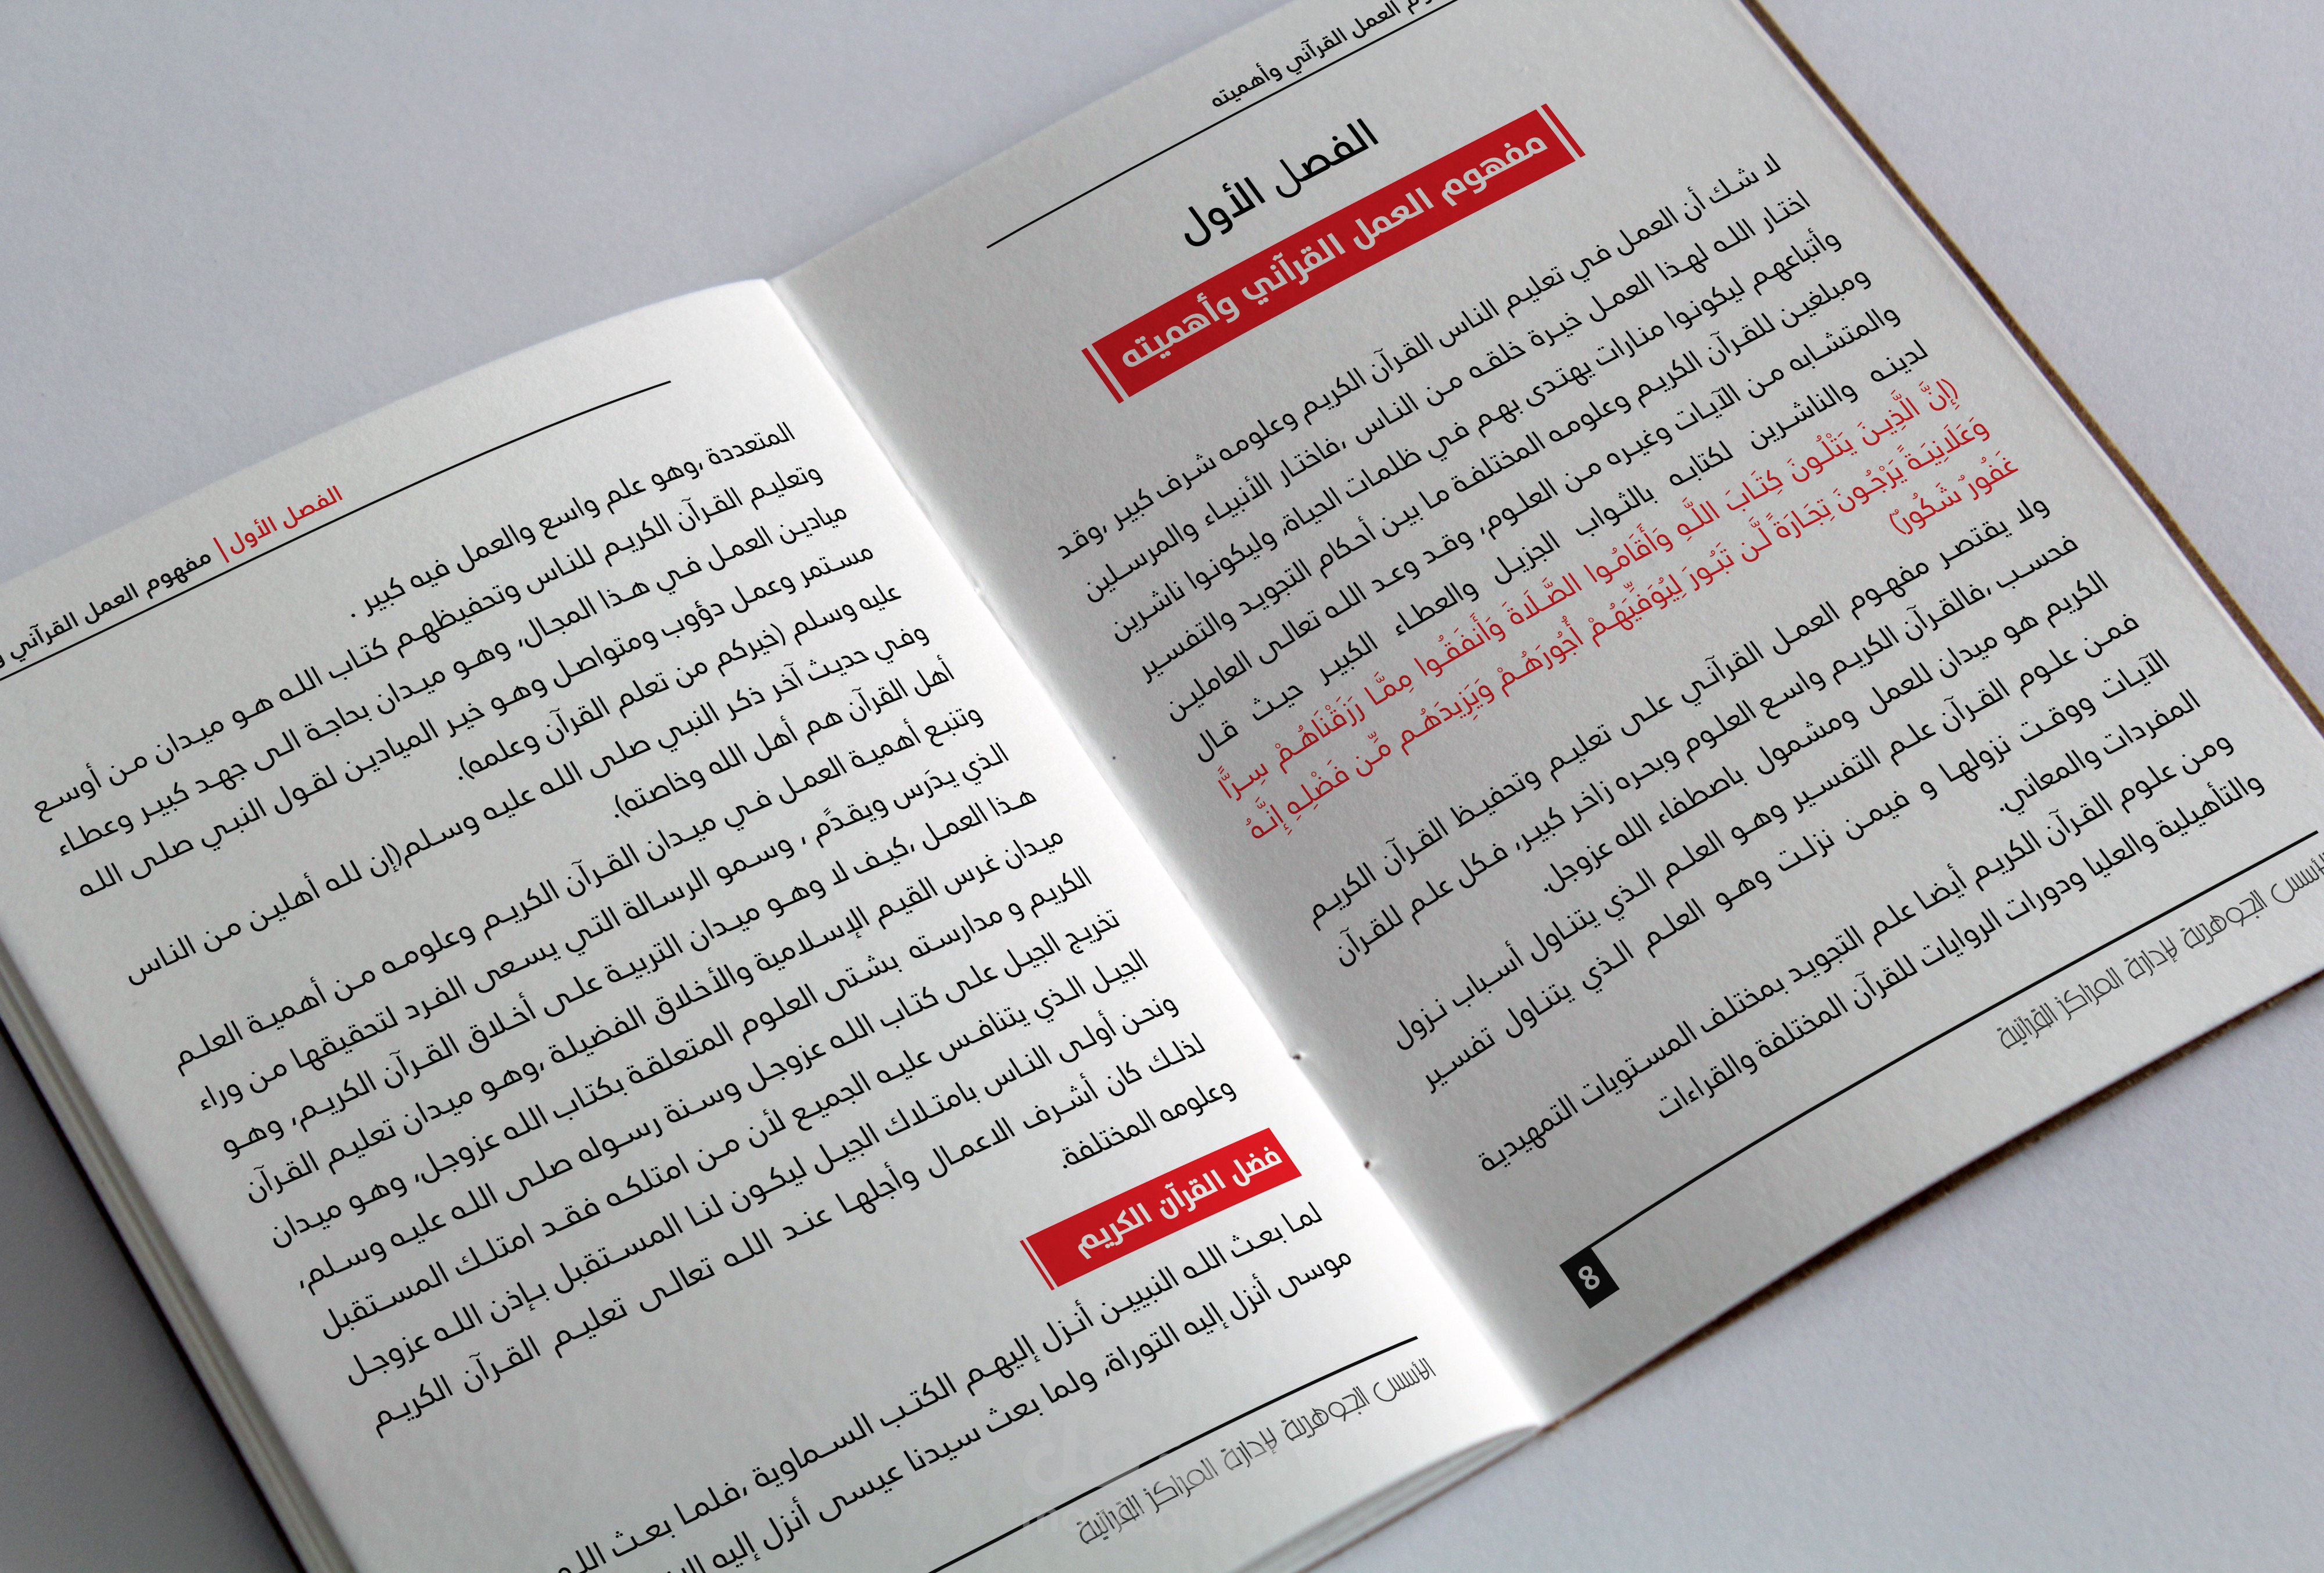 العمل القرآني وأهميته
الفصل الأول
مفهوم العمل القرآني وأهميته
لا شك أن العمل في تعليم الناس القرآن الكريم وعلومه شرف كبير ،وقد
اختار الله لهذا العمل خيرة خلقه من الناس ،فاختار الأنبياء والمرسلين
وأتباعهم ليكونوا منارات يهتدى بهم في ظلمات الحياة، وليكونوا ناشرين
ومبلغين للقرآن الكريم وعلومه المختلفة ما بين أحكام التجويد والتفسير
والمتشابه من الآيات وغيره من العلوم، وقد وعد الله تعالى العاملين
لدينه والناشرين لكتابه بالثواب الجزيل والعطاء الكبير حيث قال
(إِنَّ الَّذِينَ يَتْلُونَ كِتَابَ اللَّهِ وَأَقَامُوا الصَّلَاةَ وَأَنفَقُوا مِمَّا رَزَقْنَاهُمْ سِرًّا
وَعَلَانِيَةً يَرْجُونَ تِجَارَةً لَّن تَبُورَ لِيُوَفِّيَهُمْ أُجُورَهُمْ وَيَزِيدَهُم مِّن فَضْلِهِ إِنَّهُ
غَفُورٌ شَكُورٌ)
ولا يقتصر مفهوم العمل القرآني على تعليم وتحفيظ القرآن الكريم
فحسب ،فالقرآن الكريم واسع العلوم وبحره زاخر كبير، فكل علم للقرآن
الكريم هو ميدان للعمل ومشمول باصطفاء الله عزوجل.
فمن علوم القرآن علم التفسير وهو العلم الذي يتناول أسباب نزول
الآيات ووقت نزولها و فيمن نزلت وهو العلم الذي يتناول تفسير
المفردات والمعاني.
ومن علوم القرآن الكريم أيضا علم التجويد بمختلف المستويات التمهيدية
والتأهيلية والعليا ودورات الروايات للقرآن المختلفة والقراءات
الأسس الجوهرية لإدارة المراكز القرآنية
8
الفصل الأول | مفهوم العمل القرآني
المتعددة ،وهو علم واسع والعمل فيه كبير .
وتعليم القرآن الكريم للناس وتحفيظهم كتاب الله هو ميدان من أوسع
ميادين العمل في هذا المجال، وهو ميدان بحاجة الى جهد كبير وعطاء
مستمر وعمل دؤوب ومتواصل وهو خير الميادين لقول النبي صلى الله
عليه وسلم (خيركم من تعلم القرآن وعلمه).
وفي حديث آخر ذكر النبي صلى الله عليه وسلم(إن لله أهلين من الناس
أهل القرآن هم أهل الله وخاصته).
وتنبع أهمية العمل في ميدان القرآن الكريم وعلومه من أهمية العلم
الذي يدَرس ويقدَّم ، وسمو الرسالة التي يسعى الفرد لتحقيقها من وراء
هذا العمل ،كيف لا وهو ميدان التربية على أخلاق القرآن الكريم، وهو
ميدان غرس القيم الإسلامية والأخلاق الفضيلة ،وهو ميدان تعليم القرآن
الكريم و مدارسته بشتى العلوم المتعلقة بكتاب الله عزوجل، وهو ميدان
تخريج الجيل على كتاب الله عزوجل وسنة رسوله صلى الله عليه وسلم،
الجيل الذي يتنافس عليه الجميع لأن من امتلكه فقد امتلك المستقبل
ونحن أولى الناس بامتلاك الجيل ليكون لنا المستقبل بإذن الله عزوجل
لذلك كان أشرف الاعمال وأجلها عند الله تعالى تعليم القرآن الكريم
وعلومه المختلفة.
فضل القرآن الكريم
لما بعث الله النبيين أنزل إليهم الكتب السماوية ،فلما بعث الله
موسى أنزل إليه التوراة، ولما بعث سيدنا عيسى أنزل إليه
الأسس الجوهرية لإدارة المراكز القرآنية